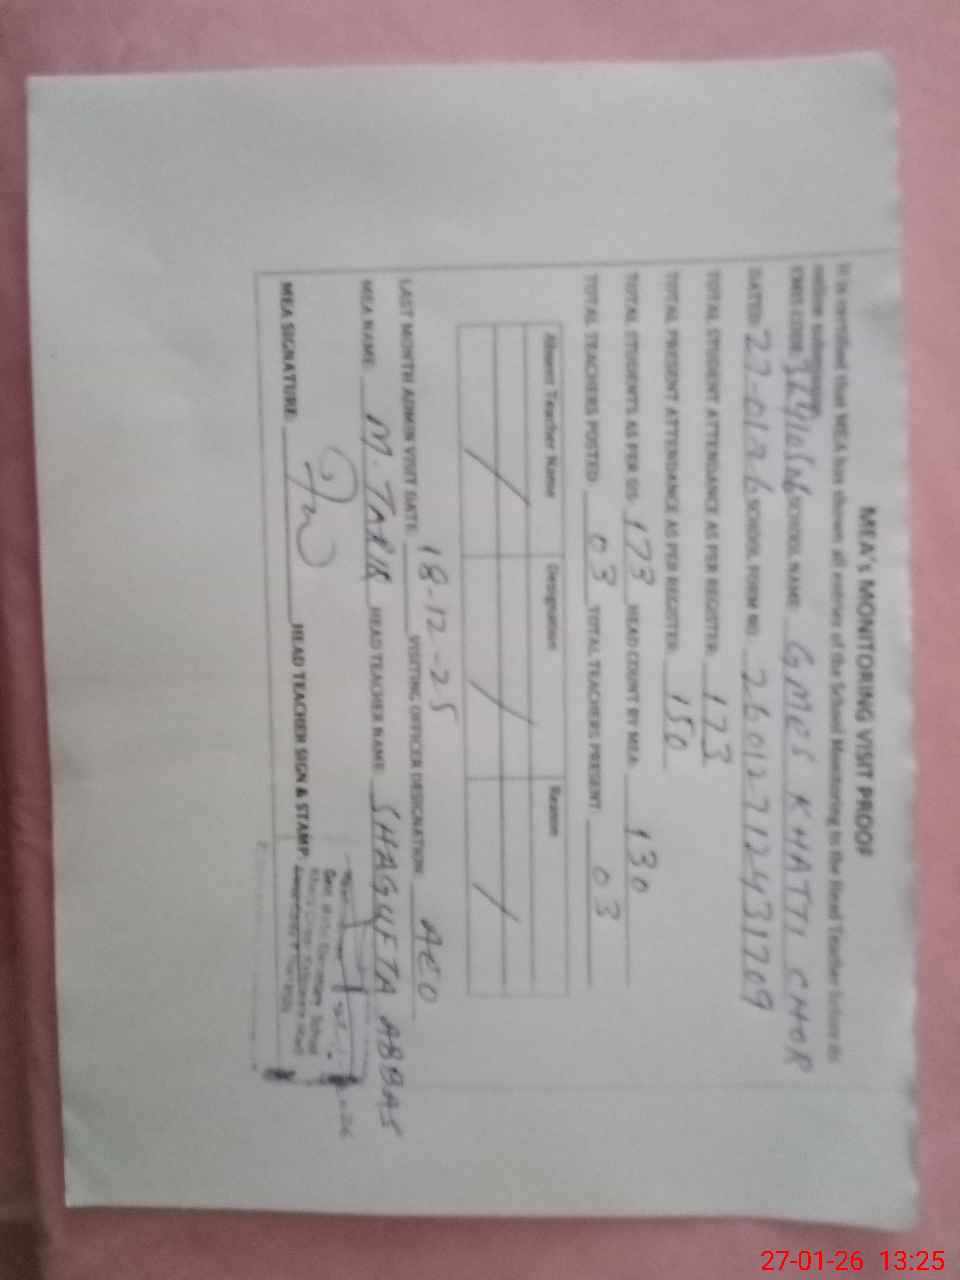 MEA's MONITORING VISIT PROOF
It is certified that MEA has shown all entries of the School Monitoring to the Head Teacher before its
online submission.
EMIS CODE: SCHOOL NAME: GMES KHATTI CHOR
DATED: 27-01-26 SCHOOL FORM NO. 26012712431709
TOTAL STUDENT ATTENDANCE AS PER REGISTER: 173
TOTAL PRESENT ATTENDANCE AS PER REGISTER: 150
TOTAL STUDENTS AS PER SIS: 173 HEAD COUNT BY MEA: 130
TOTAL TEACHERS POSTED 03 TOTAL TEACHERS PRESENT: 03
Absent Teacher Name Designation Reason
/ / /
LAST MONTH ADMIN VISIT DATE: 18-12-25 VISITING OFFICER DESIGNATION AEO
MEA NAME: M. TARIQ HEAD TEACHER NAME: SHAGUFTA ABBAS
MEA SIGNATURE: HEAD TEACHER SIGN & STAMP:
27-01-26 13:25